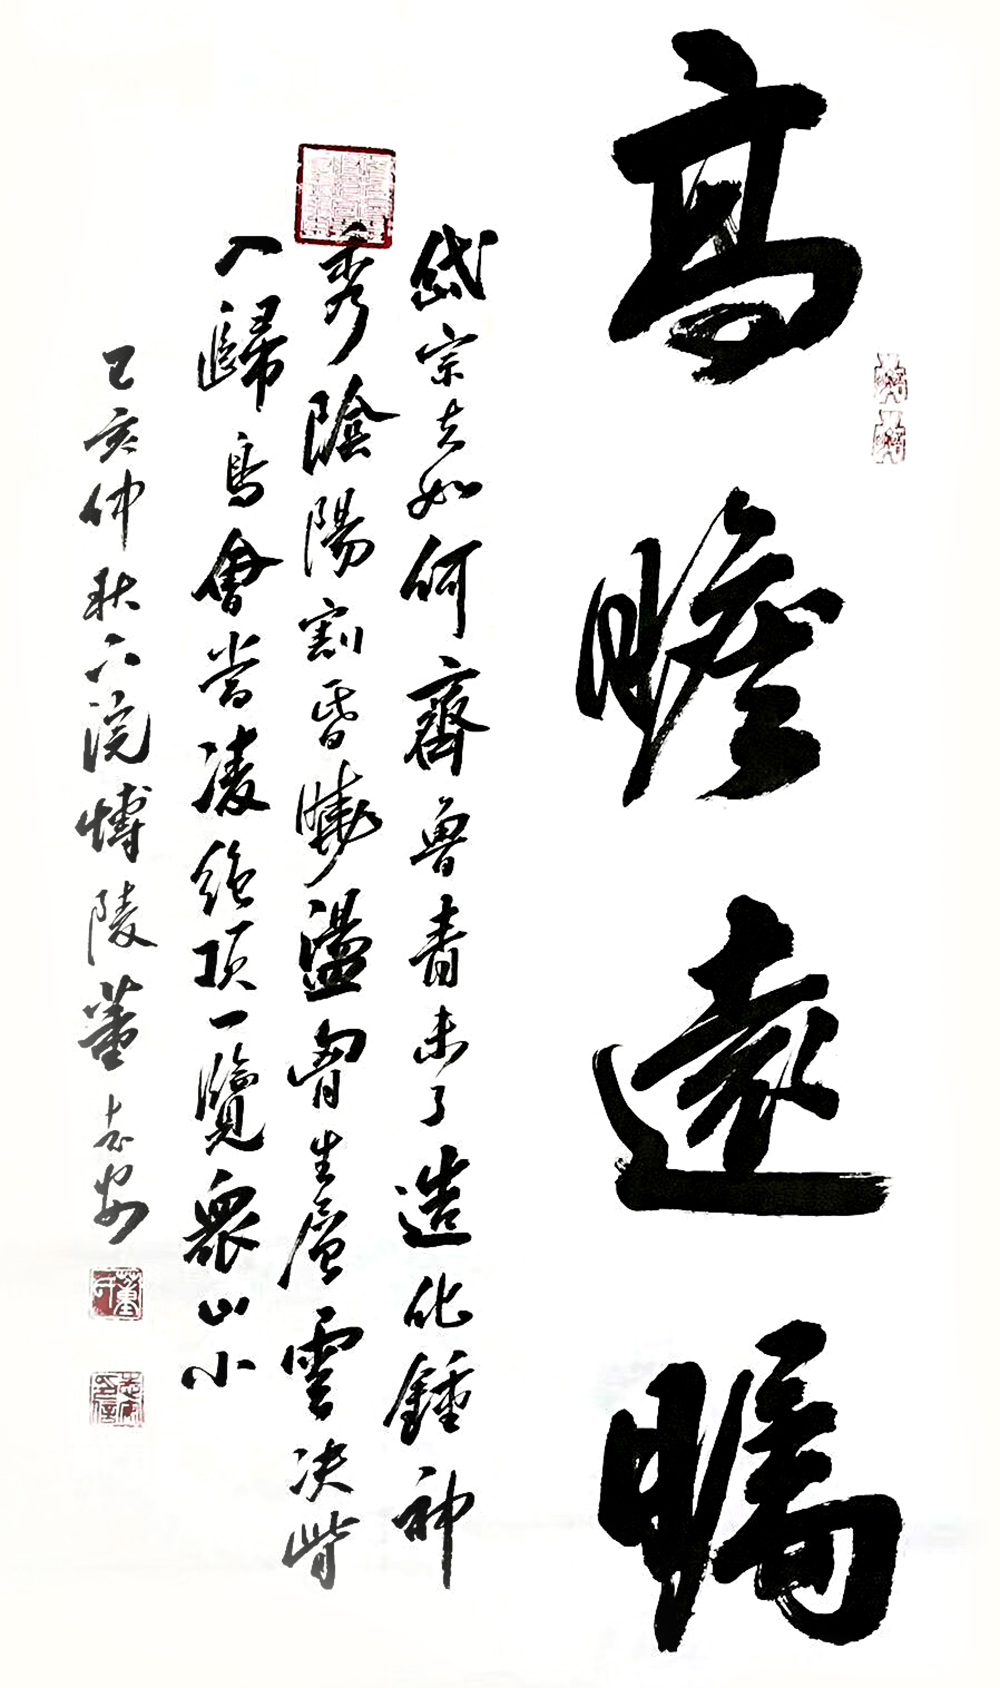 高瞻遠矚
岱宗夫如何齊魯青未了造化鍾神
秀陰陽割昏曉盪胷生層雲决眥
入歸鳥會當凌絕頂一覽衆山小
己亥仲秋六浣博陵董志安